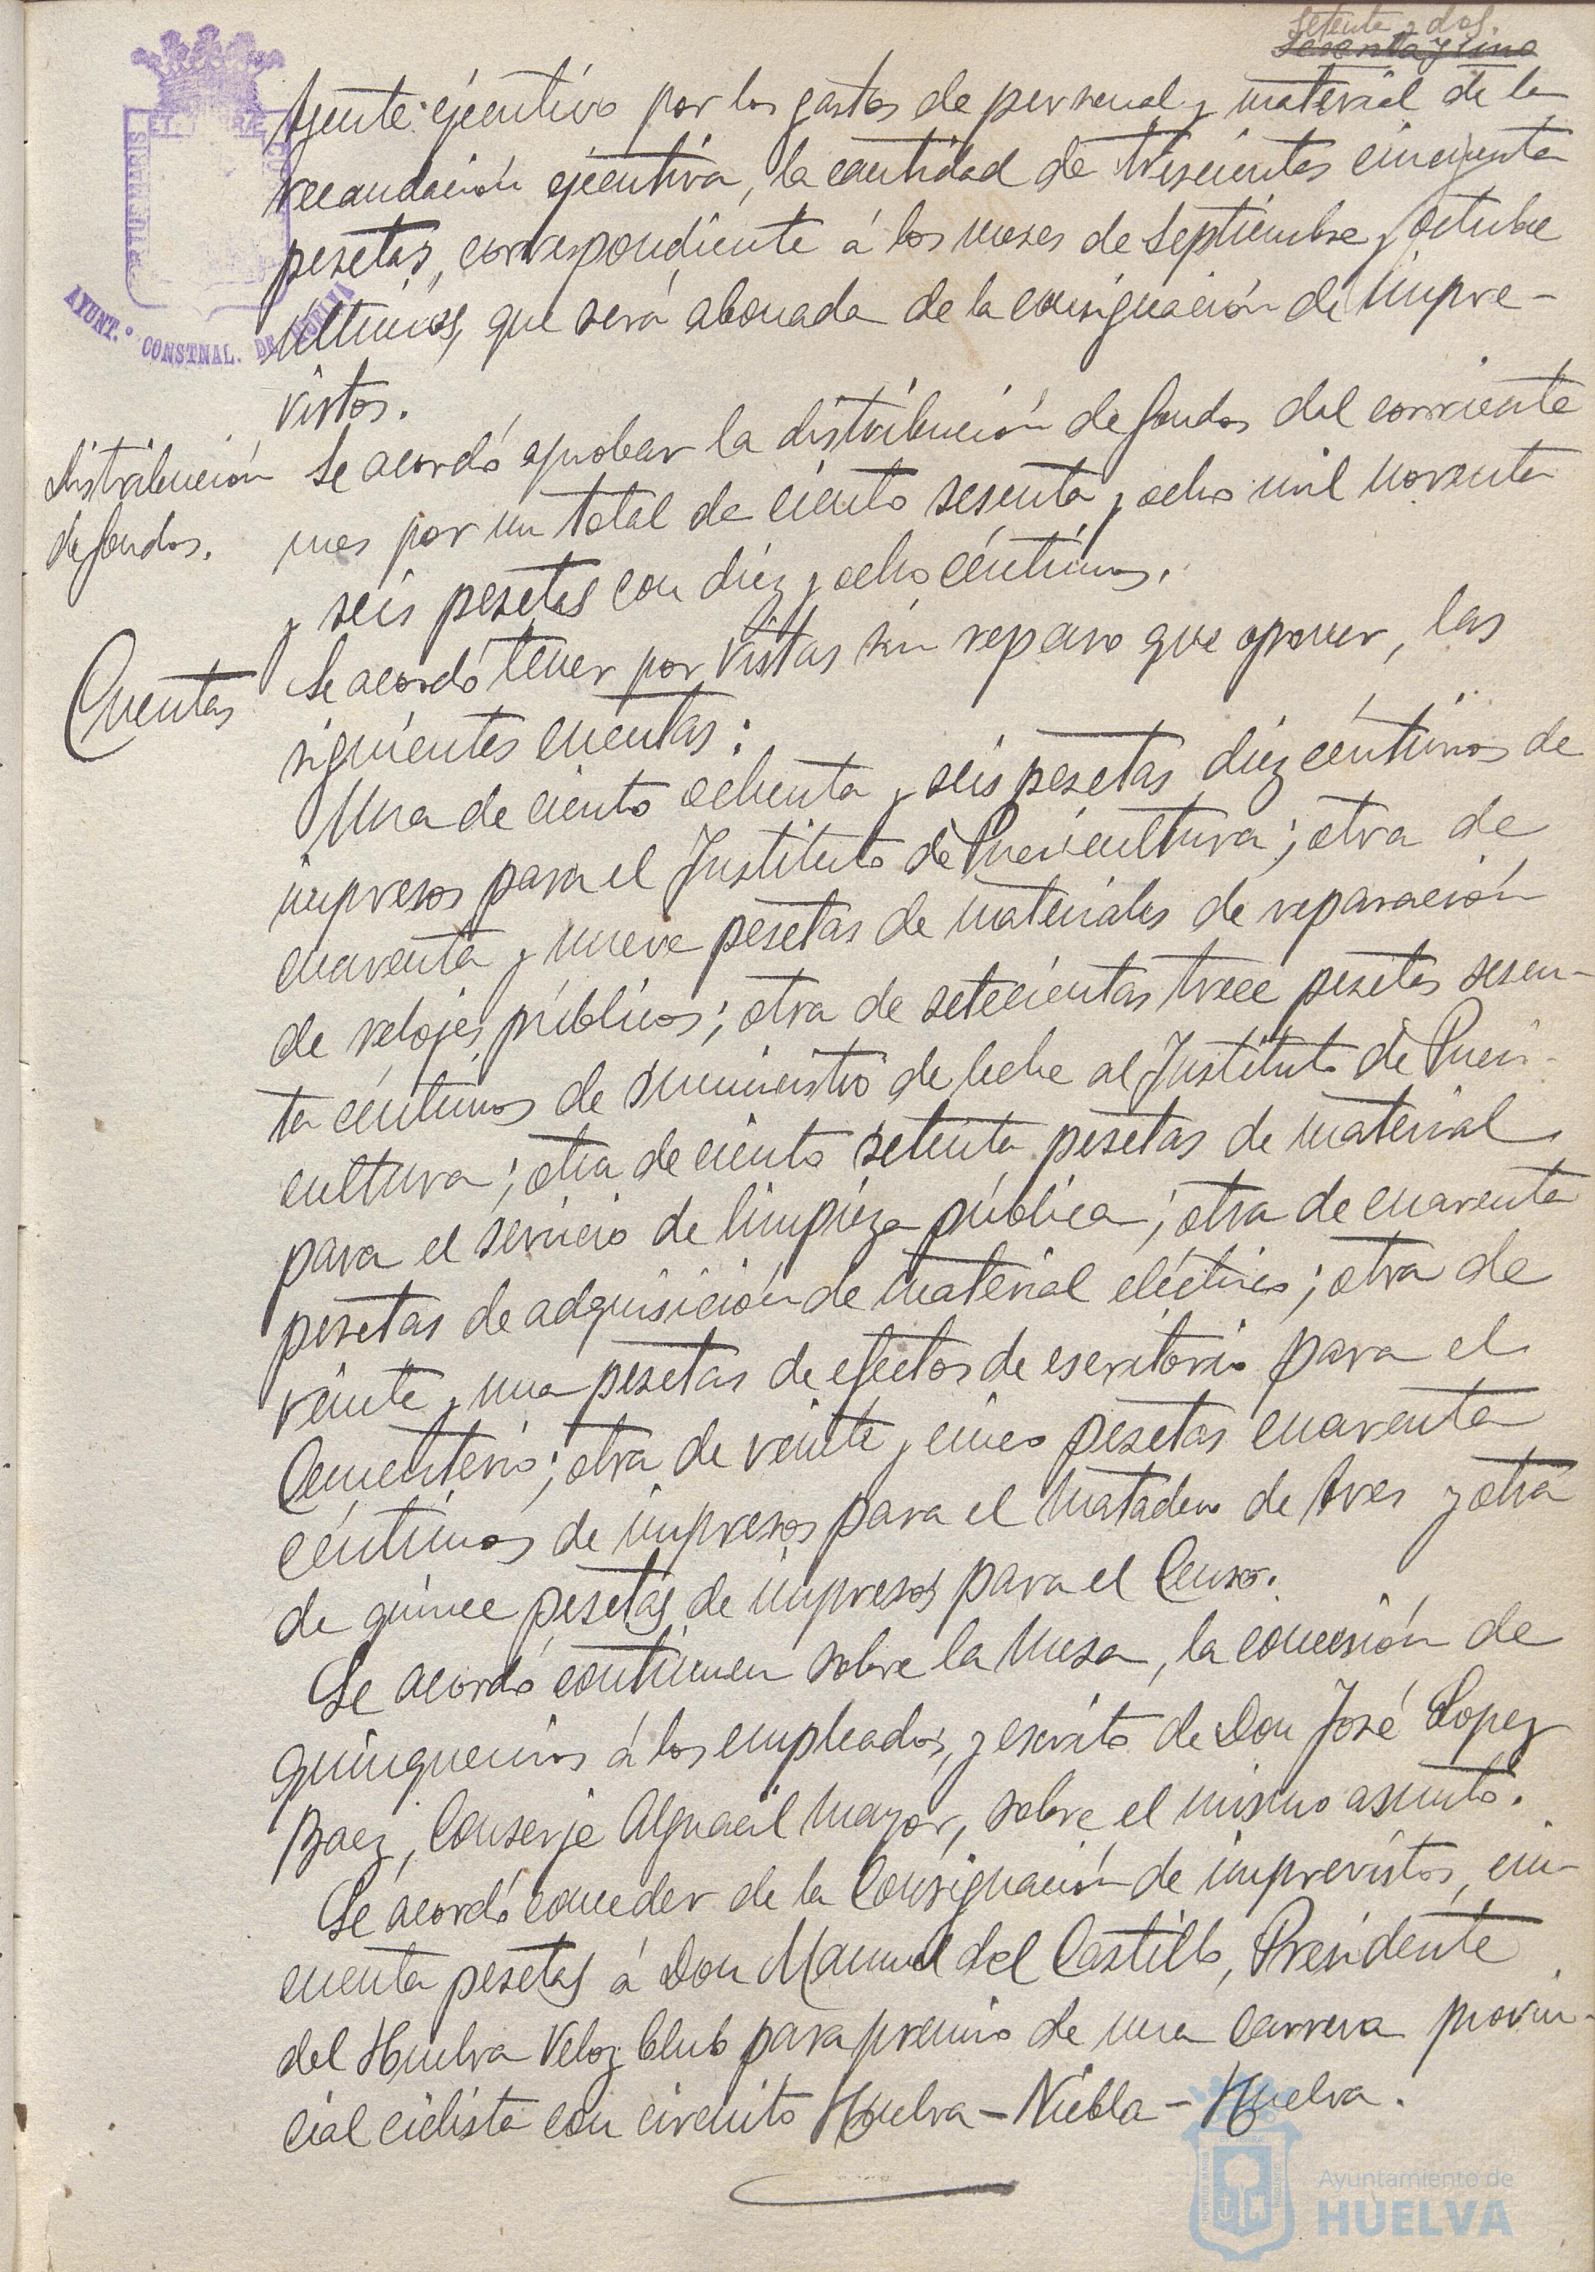 Setenta y dos.
Sesenta y uno
Agente ejecutivo por los gastos de personal y material de la
recaudación ejecutiva, la cantidad de trescientas cincuenta
pesetas, correspondiente á los meses de Septiembre y octubre
últimos, que será abonada de la consignación de Impre-
vistos.
Distribución
de fondos.
Se acordó aprobar la distribución de fondos del corriente
mes por un total de ciento sesenta y ocho mil noventa
y seis pesetas con diez y ocho céntimos.
Cuentas
Se acordó tener por vistas sin reparo que oponer, las
siguientes cuentas:
Una de ciento ochenta y seis pesetas diez céntimos de
impresos para el Instituto de Puericultura; otra de
cuarenta y nueve pesetas de materiales de reparación
de relojes públicos; otra de setecientas trece pesetas sesen-
ta céntimos de suministro de leche al Instituto de Pueri-
cultura; otra de ciento setenta pesetas de material
para el servicio de limpieza pública; otra de cuarenta
pesetas de adquisición de material eléctrico; otra de
veinte y una pesetas de efectos de escritorio para el
Cementerio; otra de veinte y cinco pesetas cuarenta
céntimos de impresos para el Matadero de Aves y otra
de quince pesetas de impresos para el Censo.
Se acordó continuen sobre la Mesa, la concesión de
quinquenios á los empleados, y escrito de Don José Lopez
Baez, Conserje Alguacil Mayor, sobre el mismo asunto.
Se acordó conceder de la Consignación de imprevistos, cin-
cuenta pesetas á Don Manuel del Castillo, Presidente
del Huelva Veloz Club para premio de una carrera provin-
cial ciclista con circuito Huelva-Niebla-Huelva.
AYUNT.º CONSTNAL. DE HUELVA
Ayuntamiento de
HUELVA